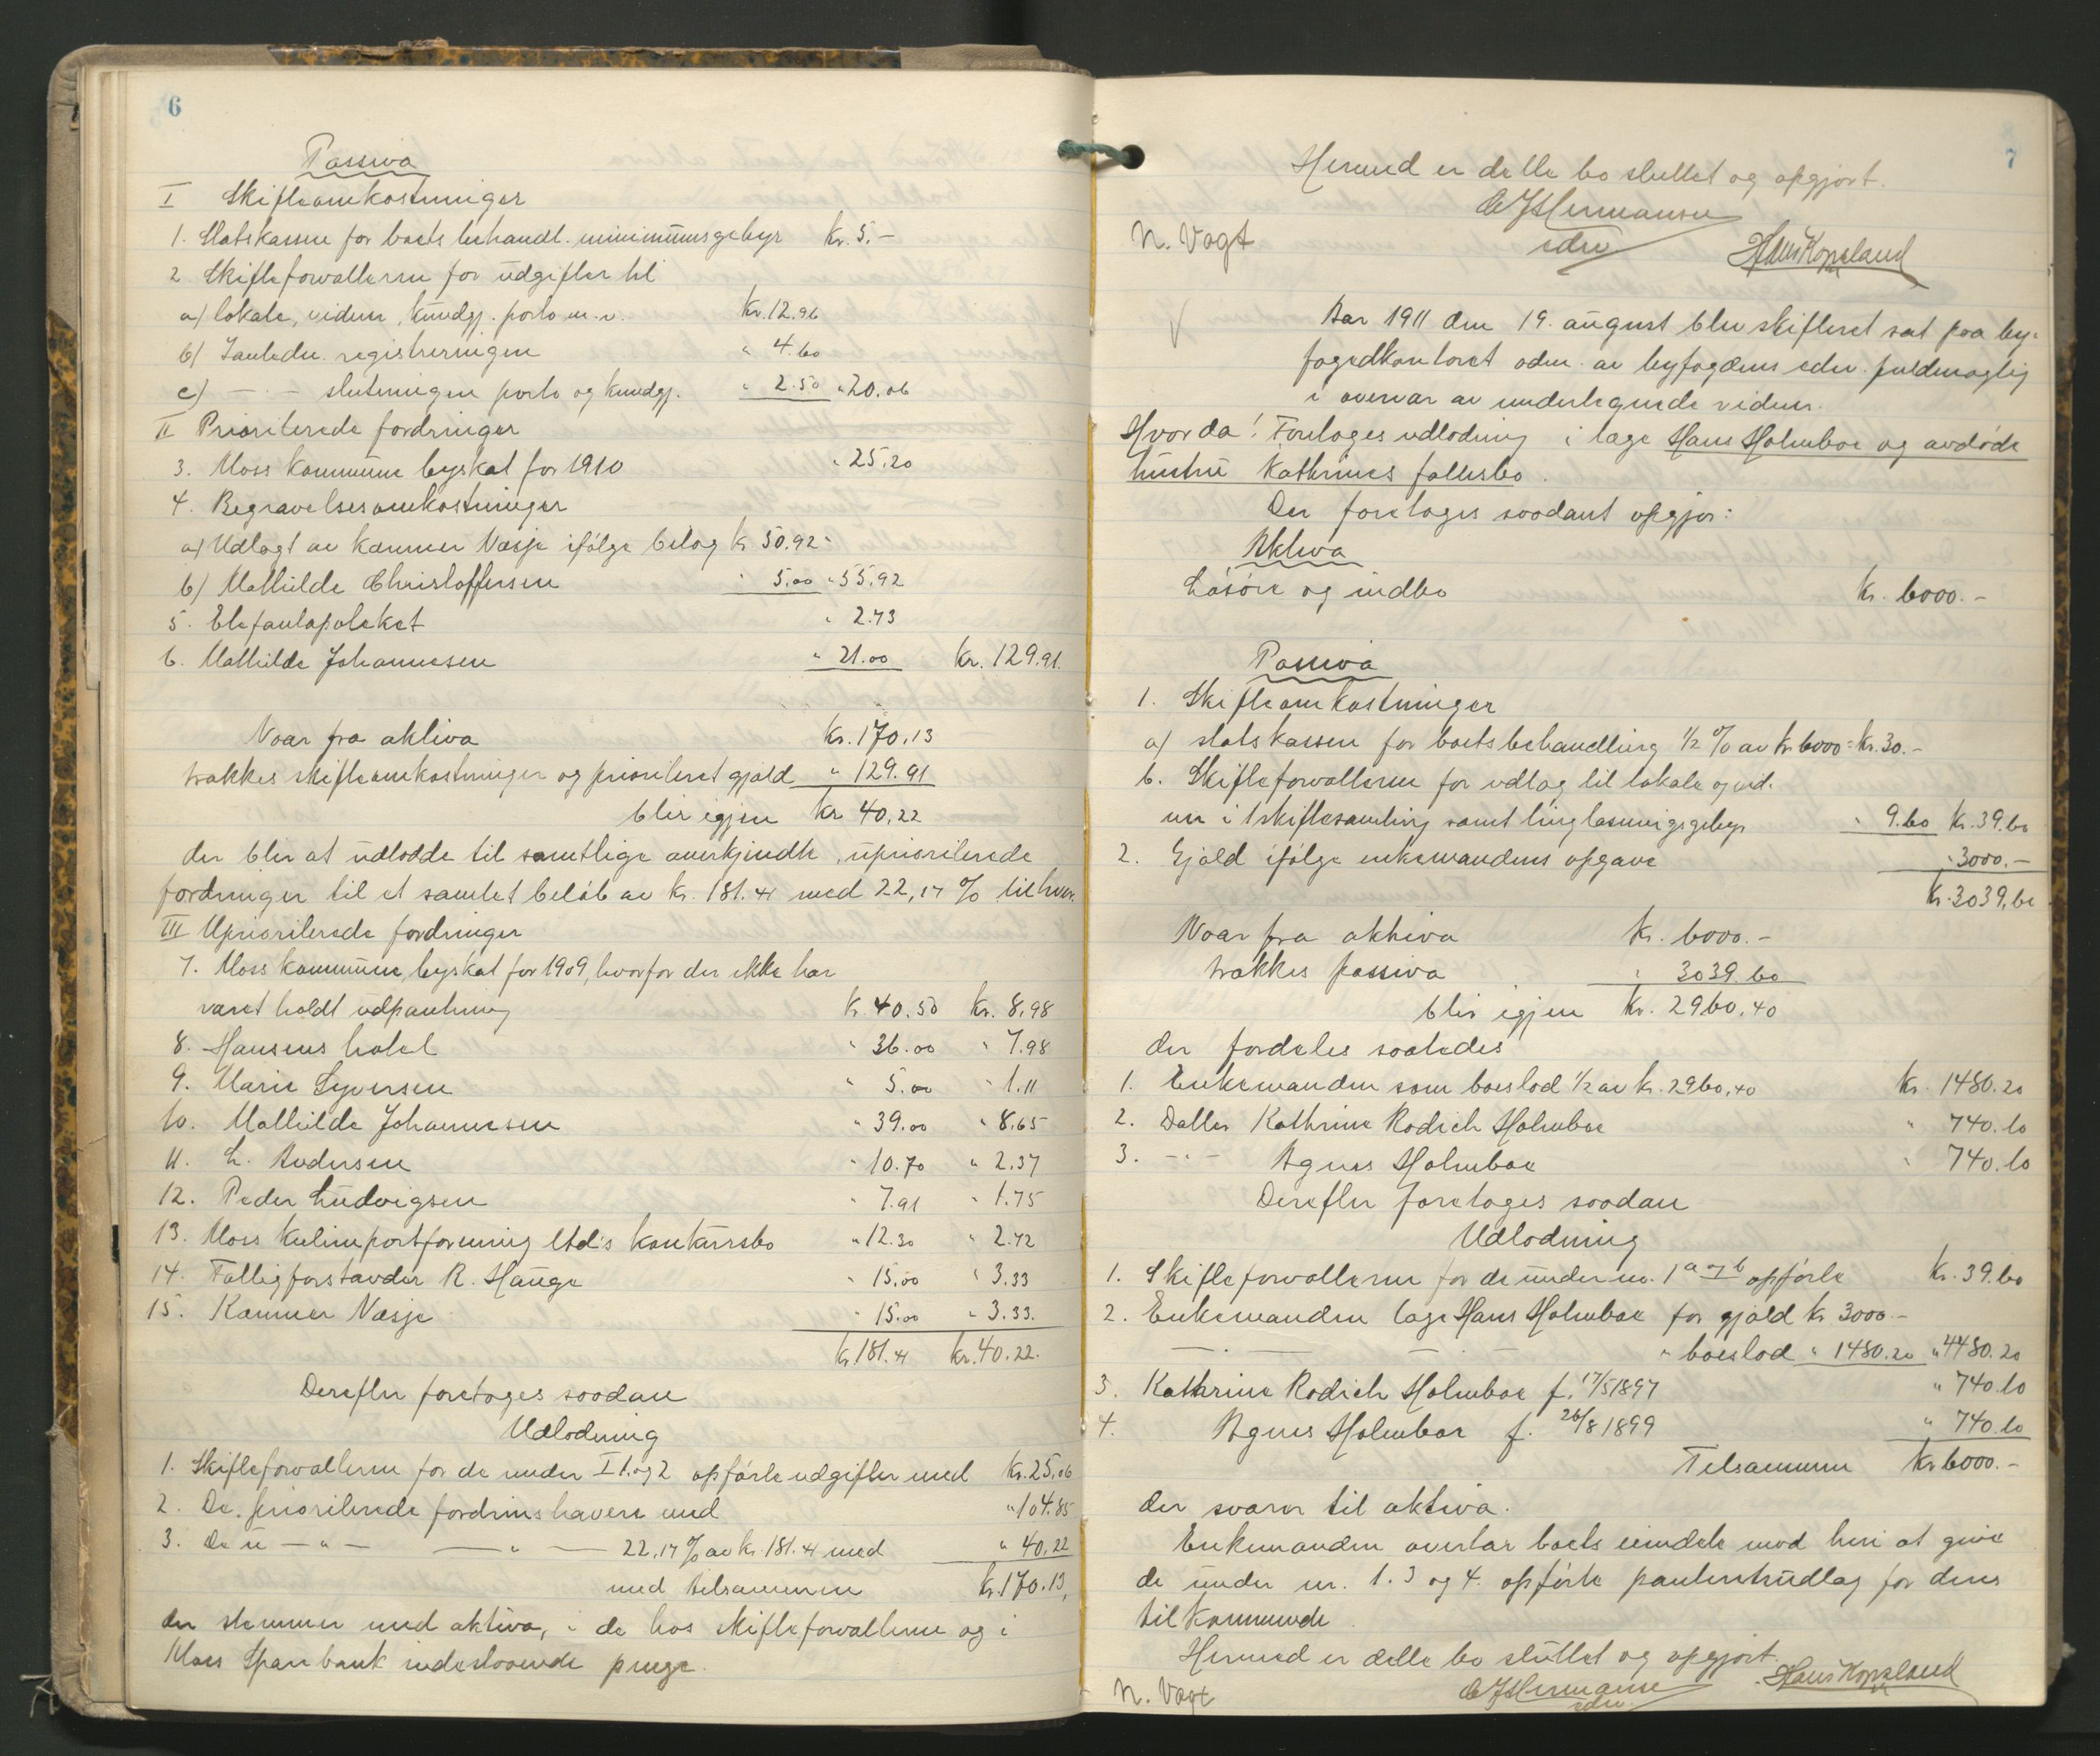 6
Passiva
I Skifteomkostninger
1. Statskassen for boets behandl. minimumsgebyr kr. 5.-
2 Skifteforvalteren for utgifter til
a) lokale, vidne, kundgj. porto m.v. kr. 12.96
b) I anledn. registreringen " 4.60
c) - " - slutningen porto og kundgj. " 2.50 " 20.06
II Prioriterede fordringer
3. Moss kommune byskat for 1910 " 25.20
4. Begravelsesomkostninger
a) Udlagt av kæmner Næsje ifølge bilag kr 50.92
b) Mathilde Christoffersen " 5.00 " 55.92
5. Elefantapoteket " 2.73
6. Mathilde Johannesen " 21.00 kr. 129.91
Naar fra aktiva kr. 170.13
trækkes skifteomkostninger og prioritert gjæld " 129.91
blir igjen kr 40.22
der blir at udlodde til samtlige anerkjendte, uprioriterede
fordringer til et samlet beløb av kr. 181.41 med 22,17 % til hver.
III Uprioriterede fordringer
7. Moss kommune, byskat for 1909, hvorfor der ikke har
været holdt udpantning kr. 40.50 kr. 8.98
8. Hansens hotel " 36.00 " 7.98
9. Marie Syversen " 5.00 " 1.11
10. Mathilde Johannesen " 39.00 " 8.65
11. L. Andersen " 10.70 " 2.37
12. Peder Ludvigsen " 7.91 " 1.75
13. Moss Kulimportforening Ltd's konkursbo " 12.30 " 2.72
14. Fattigforstander R. Hauge " 15.00 " 3.33
15. Kæmner Næsje " 15.00 " 3.33.
kr. 181.41 kr. 40.22.
Derefter foretages saadan
Udlodning
1. Skifteforvalteren for de under I 1. og 2 opførte udgifter med kr. 25.06
2. De prioriterede fordringshavere med " 104.85
3. De u - " - - " - 22,17 % av kr. 181.41 med " 40.22
med tilsammen kr. 170.13,
der stemmer med aktiva, i de hos skifteforvalteren og i
Moss Sparebank indestaaende penge.
7
Hermed er dette bo sluttet og opgjort.
C J Hermansen
edsv
N. Vogt Hans Kopseland
Aar 1911 den 19. august blev skifteret sat paa by-
fogedkontoret adm. av byfogdens edsv. fuldmægtig
i overvær av undertegnede vidner.
Hvorda! Foretages udlodning i læge Hans Holmboe og avdøde
hustru Kathrines fællesbo.
Der foretages saadant opgjør:
Aktiva
Løsøre og indbo kr. 6000.-
Passiva
1. Skifteomkostninger
a) statskassen for boets behandling 1/2 % av kr. 6000 = kr. 30.-
b. Skifteforvalteren for udlæg til lokale og vid-
ner i 1 skiftesamling samt tinglæsningsgebyr " 9.60 kr. 39.60
2. Gjæld ifølge enkemandens opgave " 3000.-
kr. 3039,60
Naar fra aktiva kr. 6000.-
trækkes passiva " 3039.60
blir igjen kr. 2960.40
der fordeles saaledes
1. Enkemanden som boeslod 1/2 av kr. 2960,40 kr. 1480.20
2. Datter Kathrine Rodich Holmboe " 740.10
3. - " - Agnes Holmboe " 740.10
Derefter foretages saadan
Udlodning
1. Skifteforvalteren for de under no. 1 a og b opførte kr. 39.60
2. Enkemanden læge Hans Holmboe for gjæld kr 3000.-
- " - " boeslod " 1480.20 " 4480.20
3. Kathrine Rodich Holmboe f. 17/5 1897 " 740.10
4. Agnes Holmboe f. 26/8 1899 " 740.10
Tilsammen kr 6000.-
der svarer til aktiva.
Enkemanden overtar boets eiendele mod heri at give
de under nr. 1. 3 og 4. opførte panteretudlæg for deres
tilkommende
Hermed er dette bo sluttet og opgjort.
N. Vogt C J Hermansen Hans Kopseland
edsv.